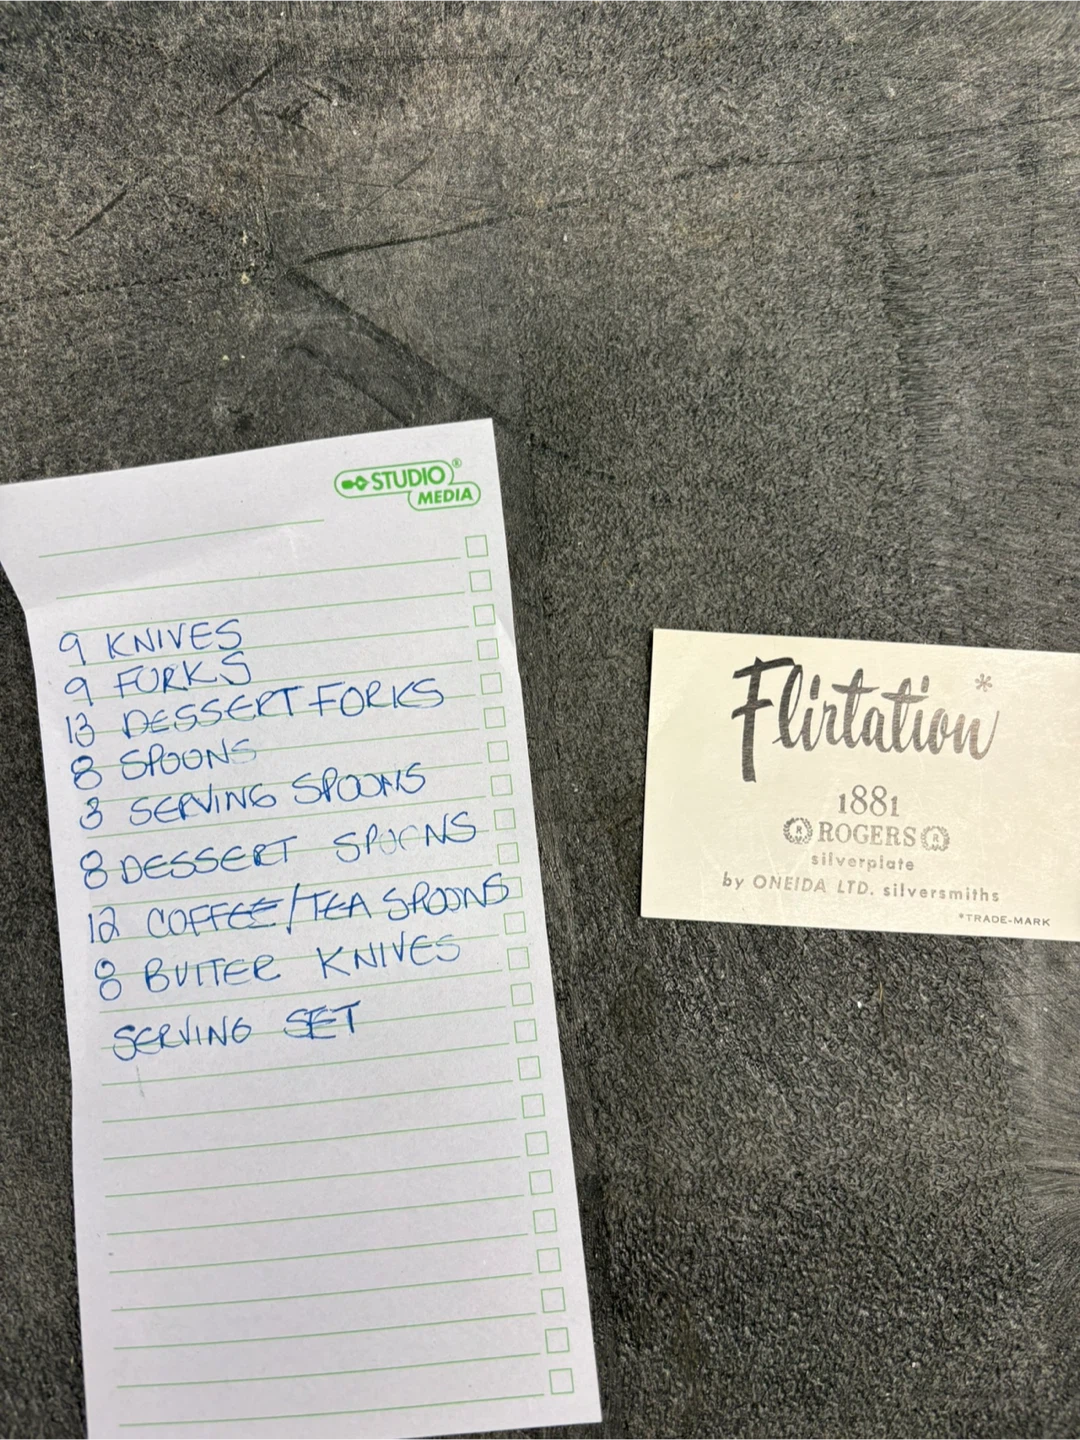 STUDIO®
MEDIA
9 KNIVES
9 FORKS
13 DESSERT FORKS
8 SPOONS
3 SERVING SPOONS
8 DESSERT SPOONS
12 COFFEE/TEA SPOONS
8 BUTTER KNIVES
SERVING SET
Flirtation*
1881
R ROGERS R
silverplate
by ONEIDA LTD. silversmiths
*TRADE-MARK